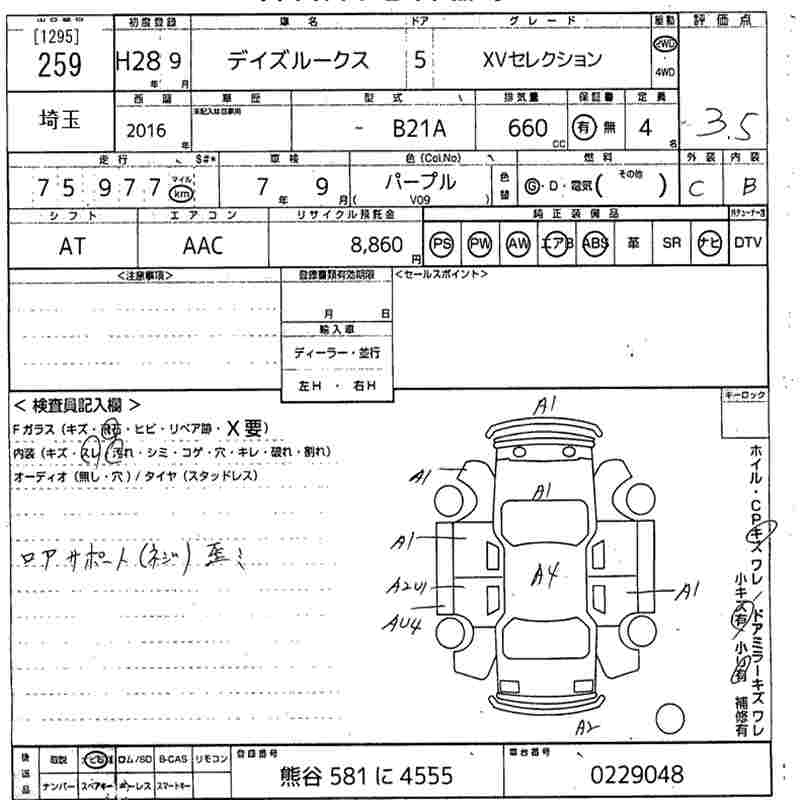 [1295]
259
初度登録 車名 ドア グレード 駆動 評価点
H28 9 デイズルークス 5 XVセレクション 2WD
年 月 4WD
埼玉
西暦 車歴 型式 排気量 保証書 定員
2016 年 - B21A 660 CC 有 無 4 名 3.5
走行 S#* 車検 色(Col.No) 燃料 外装 内装
75977 マイル km 7 年 9 月 パープル 色替 G・D・電気( その他 ) C B
( V09 )
シフト エアコン リサイクル預託金 純正装備品
AT AAC 8,860 円 PS PW AW エアB ABS 革 SR ナビ DTV
<注意事項> 登録書類有効期限 <セールスポイント>
月 日
輸入車
ディーラー・並行
左H ・ 右H
< 検査員記入欄 > キーロック
Fガラス(キズ・飛石・ヒビ・リペア跡・X要)
内装(キズ・スレ・汚れ・シミ・コゲ・穴・キレ・破れ・割れ)
オーディオ(無し・穴)/タイヤ(スタッドレス)
ロアサポート(ネジ)歪ミ
A1
A1
A1
A1
A4
A2U1
A1
AU4
A2
ホイル・CPキズワレ/ドアミラーキズワレ
小キズ有/小U有 補修有
後送品 取説 ナビロム ロム/SD B-CAS リモコン 登録番号 車台番号
ナンバー スペアキー キーレス スマートキー 熊谷 581 に 4555 0229048